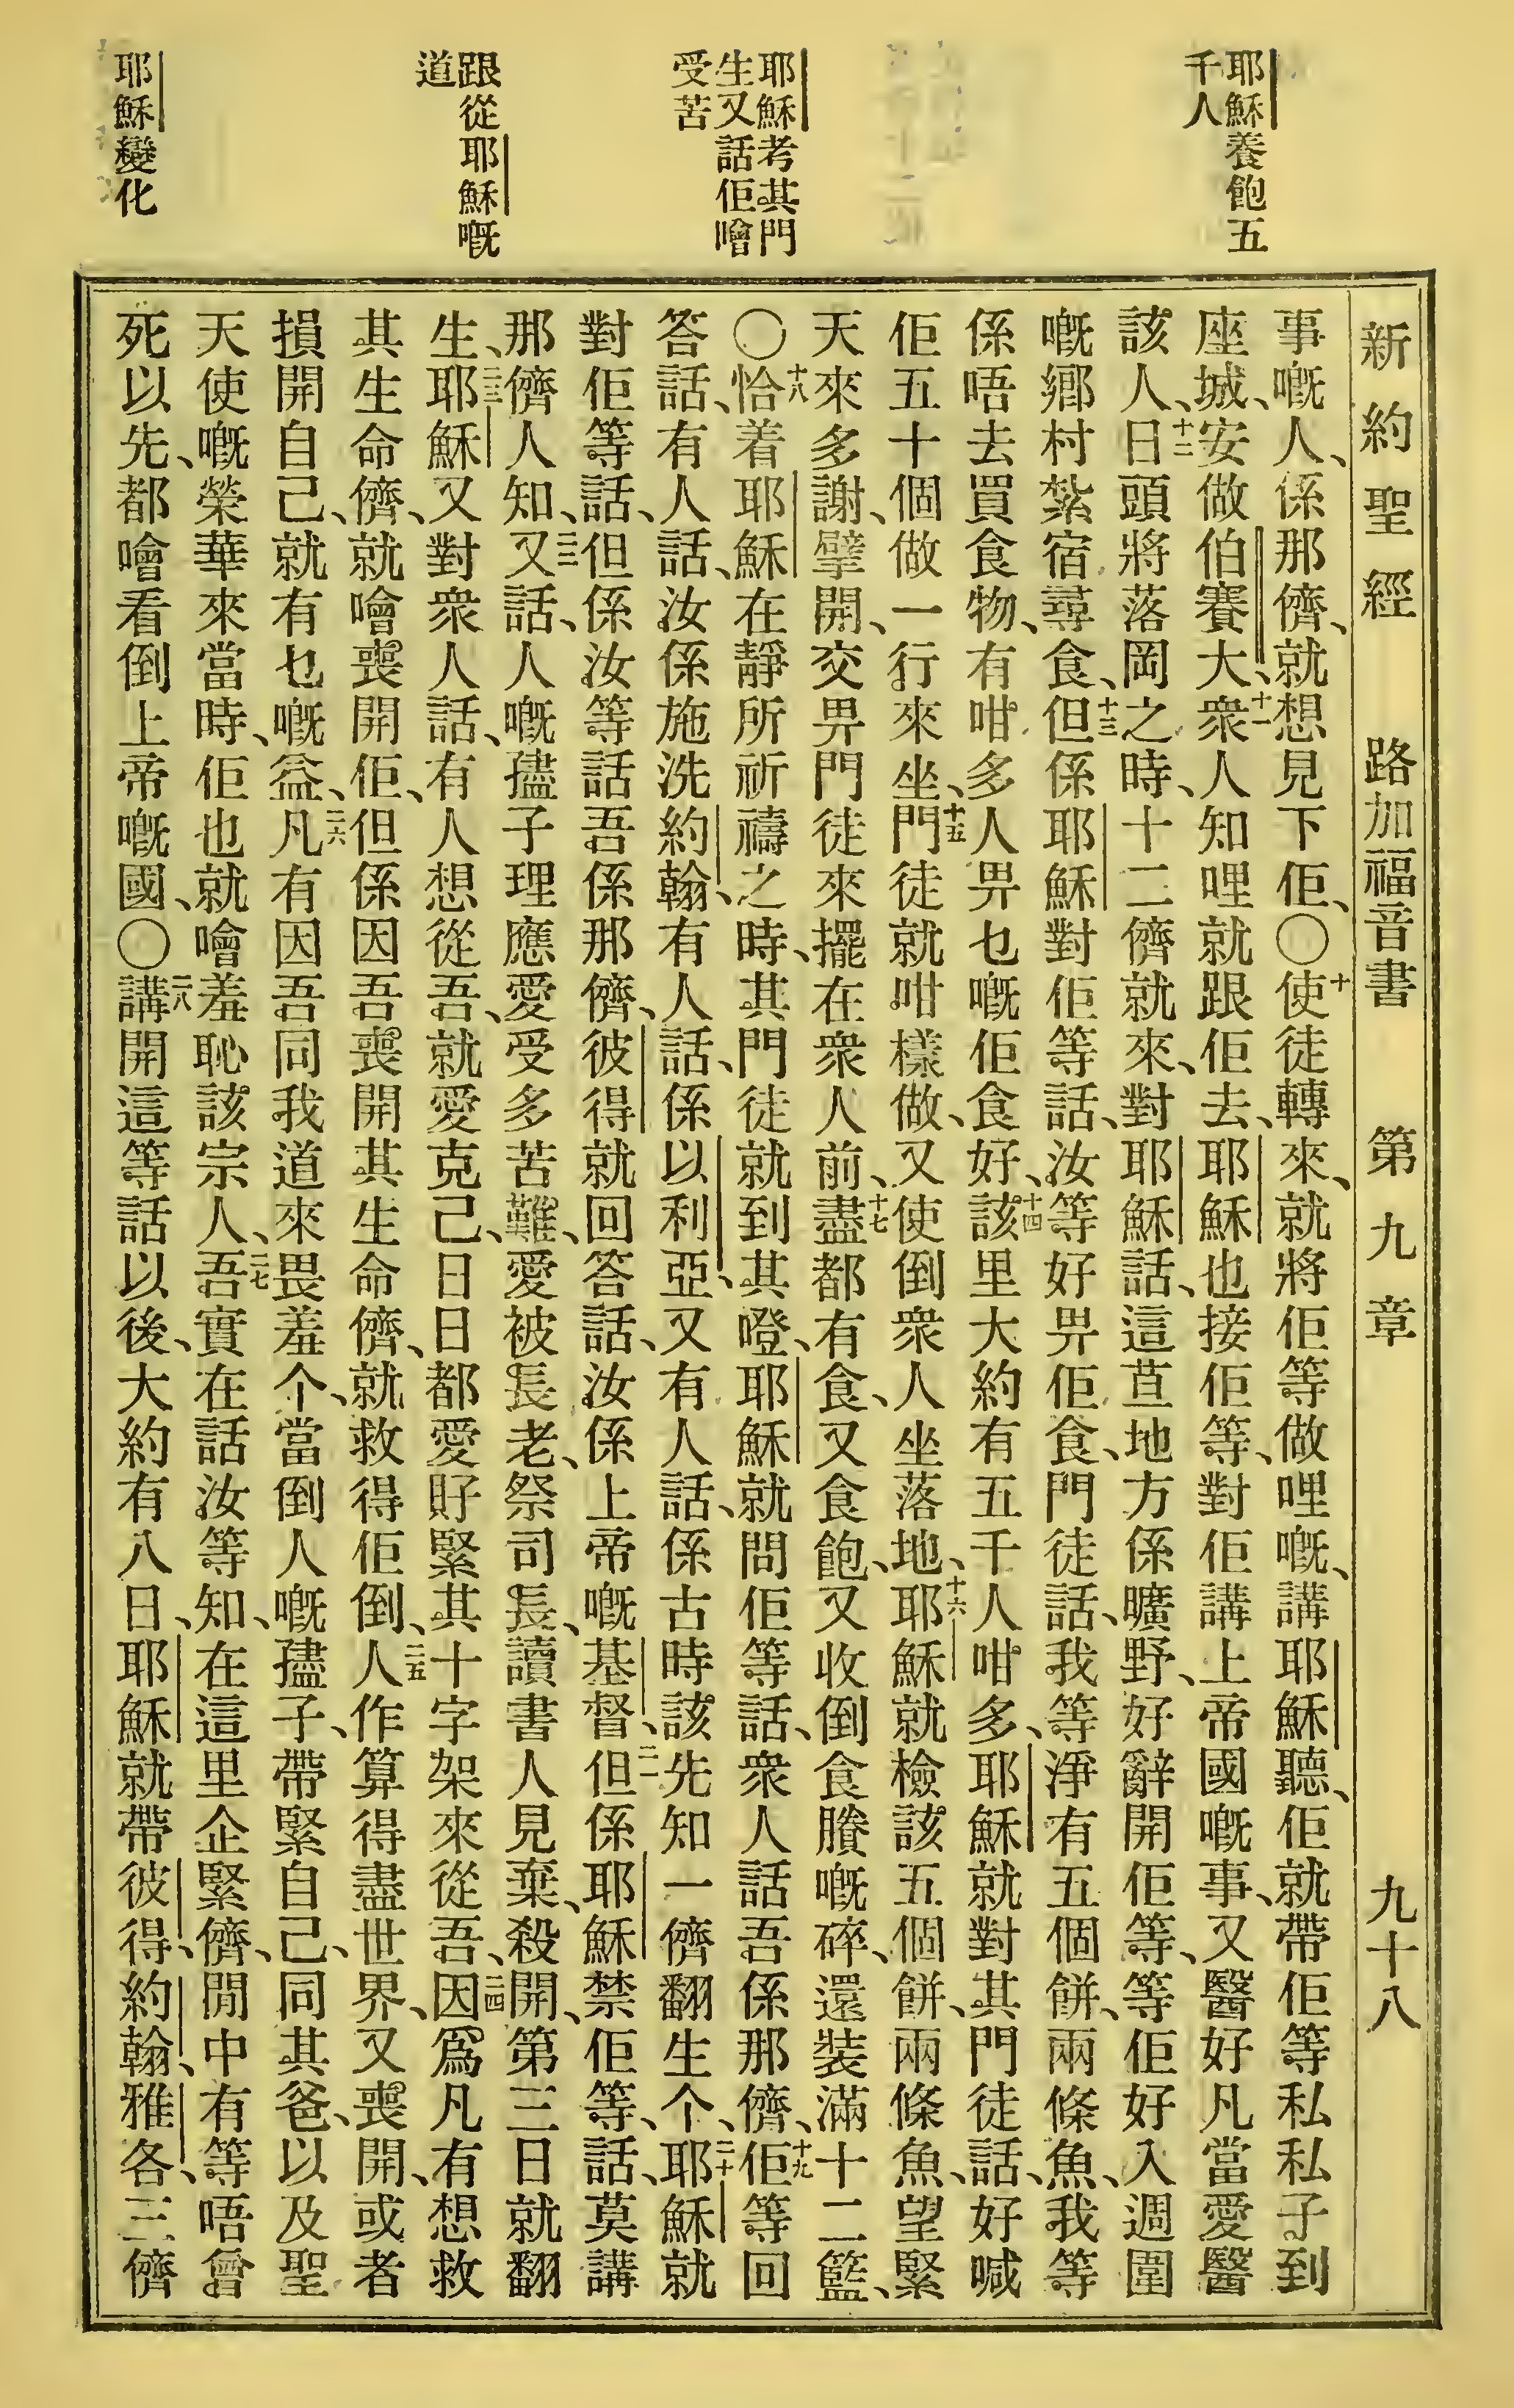 耶穌養飽五
千人
耶穌考其門
生又話佢噲
受苦
跟從耶穌嘅
道
耶穌變化
新約聖經 路加福音書 第九章 九十八
事嘅人、係那儕、就想見下佢、〇十使徒轉來、就將佢等做哩嘅、講耶穌聽、佢就帶佢等私私子到
座城、安做伯賽大、十一衆人知哩就跟佢去、耶穌也接佢等、對佢講上帝國嘅事、又醫好凡當愛醫
該人、十二日頭將落岡之時、十二儕就來、對耶穌話、這䓁地方係曠野、好辭開佢等、等佢好入週圍
嘅鄉村紮宿尋食、十三但係耶穌對佢等話、汝等好畀佢食、門徒話、我等淨有五個餅、兩條魚、我等
係唔去買食物、有咁多人畀乜嘅佢食好、十四該里大約有五千人咁多、耶穌就對其門徒話、好喊
佢五十個做一行來坐、十五門徒就咁樣做、又使倒衆人坐落地、十六耶穌就檢該五個餅、兩條魚、望緊
天來多謝、擘開、交畀門徒來擺在衆人前、十七盡都有食、又食飽、又收倒食賸嘅碎、還裝滿十二籃、
〇十八恰着耶穌在靜所祈禱之時、其門徒就到其嶝、耶穌就問佢等話、衆人話吾係那儕、十九佢等回
答話、有人話、汝係施洗約翰、有人話、係以利亞、又有人話、係古時該先知一儕翻生个、二十耶穌就
對佢等話、但係汝等話吾係那儕、彼得就回答話、汝係上帝嘅基督、二一但係耶穌禁佢等、話、莫講
那儕人知、二二又話、人嘅孻子理應愛受多苦難、愛被長老、祭司長、讀書人見棄、殺開、第三日就翻
生、二三耶穌又對衆人話、有人想從吾、就愛克己、日日都愛㧱緊其十字架來從吾、二四因爲凡有想救
其生命儕、就噲喪開佢、但係因吾喪開其生命儕、就救得佢倒、二五人作算得盡世界、又喪開、或者
損開自己、就有乜嘅益、二六凡有因吾同我道來畏羞个、當倒人嘅孻子、帶緊自己、同其爸、以及聖
天使嘅榮華來當時、佢也就噲羞恥該宗人、二七吾實在話汝等知、在這里企緊儕、閒中有等唔曾
死以先、都噲看倒上帝嘅國、〇二八講開這等話以後、大約有八日、耶穌就帶彼得、約翰、雅各、三儕